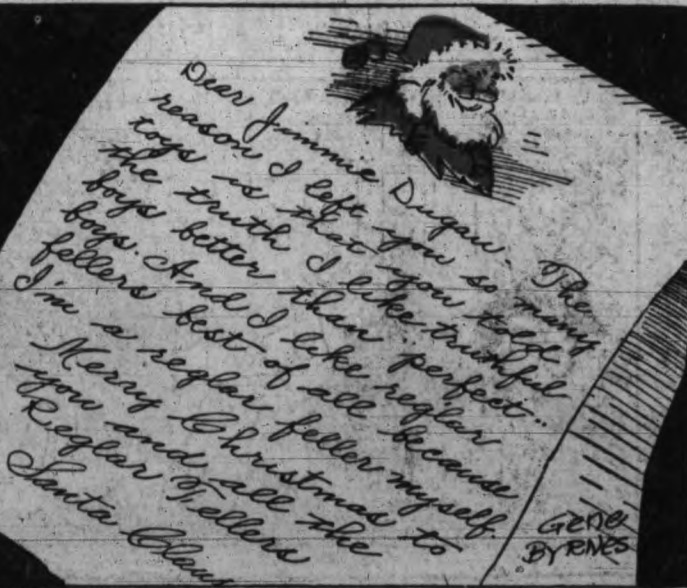 Dear Jimmie Dugan. The
reason I left you so many
toys is that you told
the truth I like truthful
boys better than perfect..
boys. And I like reglar
fellers best of all because
I'm a reglar feller myself.
Merry Christmas to
you and all the
Reglar Fellers
Santa Claus
Gene
BYRNES